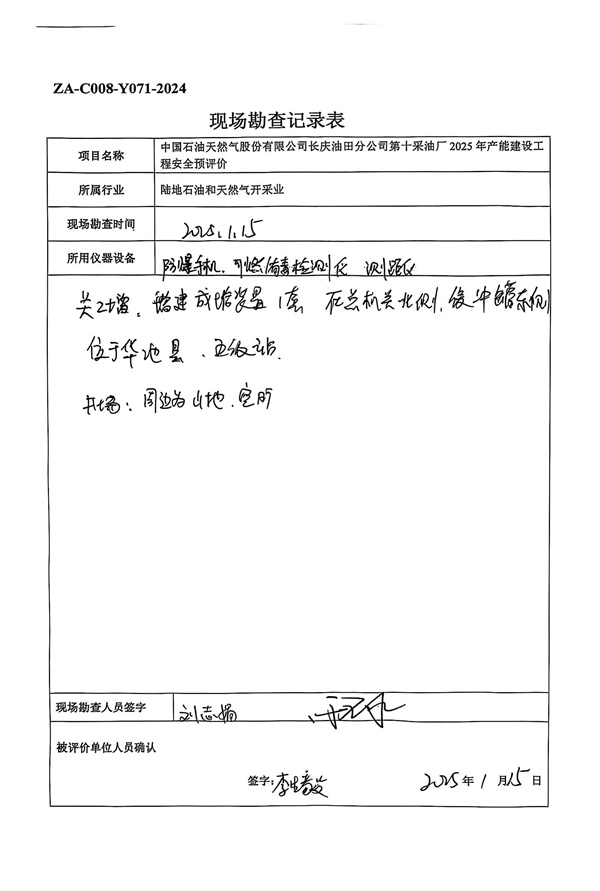 ZA-C008-Y071-2024
现场勘查记录表
项目名称
中国石油天然气股份有限公司长庆油田分公司第十采油厂 2025 年产能建设工
程安全预评价
所属行业
陆地石油和天然气开采业
现场勘查时间
2025.1.15
所用仪器设备
防爆手机、可燃有毒检测仪 测距仪
增建 装置 1套 在总机关北侧, 缓冲罐东侧
位于华池县、五级站.
井场: 周边为山地、空旷
现场勘查人员签字
刘志娟
被评价单位人员确认
签字:李生
2025年 1 月 15 日